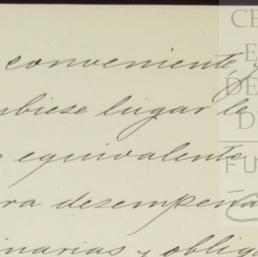 conveniente y
ubiese lugar le
equivalente
ra desempeña
inarias y oblig
CE
E
DE
D
FU